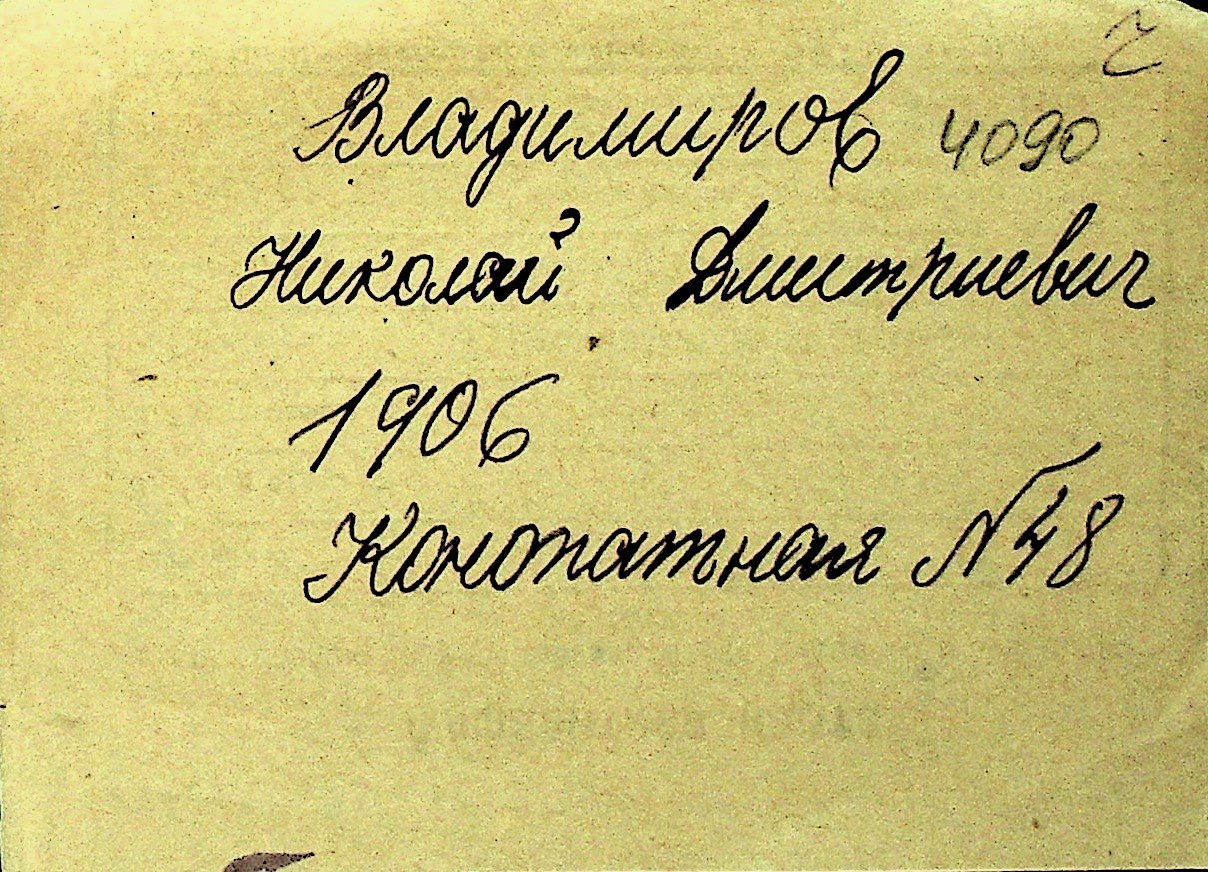 Владимиров 4090
Николай Дмитриевич
1906
Конопатная №48